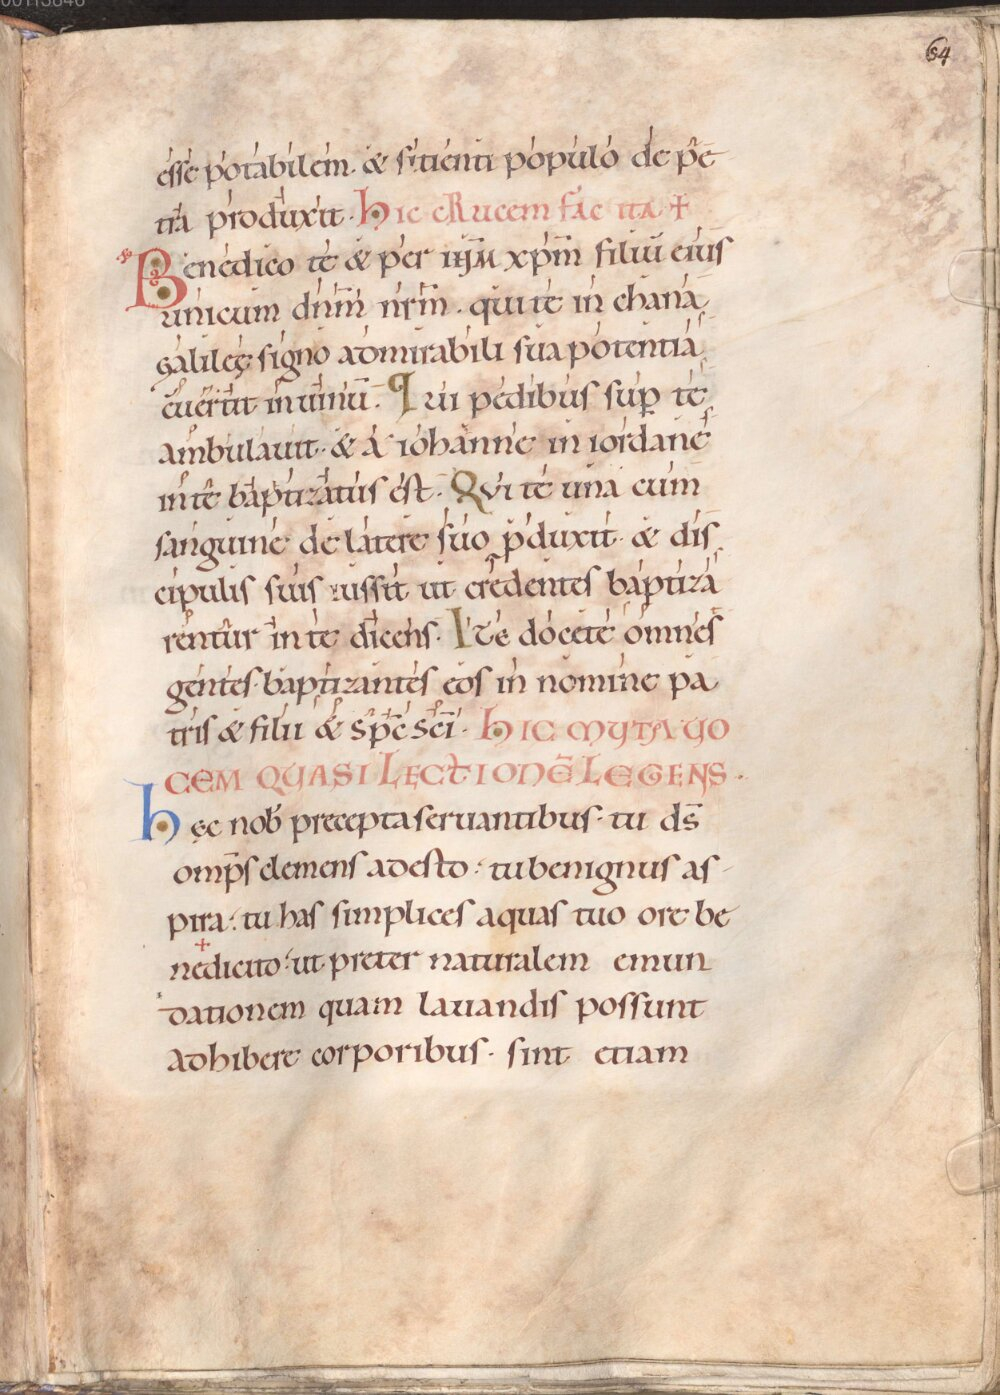 64
esse potabilem. & sitienti populo de pe
tra produxit. hic cRucem fac ita +
Benedico te & per iħm xp̄m filiū eius
unicum dn̄m nr̄m. qui te in chana
galileę signo admirabili sua potentia
cuertit in uinū. Qui pedibus sup te
ambulauit. & a iohanne in iordane
in te baptizatus est. Qui te una cum
sanguine de latere suo p̄duxit. & dis
cipulis suis iussit ut credentes baptiza
rentur in te dicens. Ite docete omnes
gentes. baptizantes eos in nomine pa
tris & filii & sp̄c sc̄i. hic MUTA UO
CEM QUASI LECTIONĒ LEGENS.
hęc nob̄ precepta seruantibus. tu ds̄
omp̄s clemens adesto. tu benignus as
pira. tu has simplices aquas tuo ore be
nedicito. ut preter naturalem emun
dationem quam lauandis possunt
adhibere corporibus. sint etiam